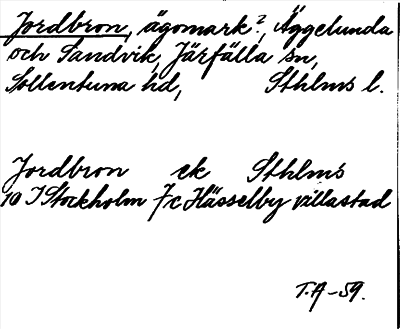 Jordbron, ägomark?, Äggelunda
och Sandvik, Järfälla sn,
Sollentuna hd, Sthlms l.
Jordbron ek Sthlms
10 I Stockholm 7c Hässelby villastad
T.A -59.